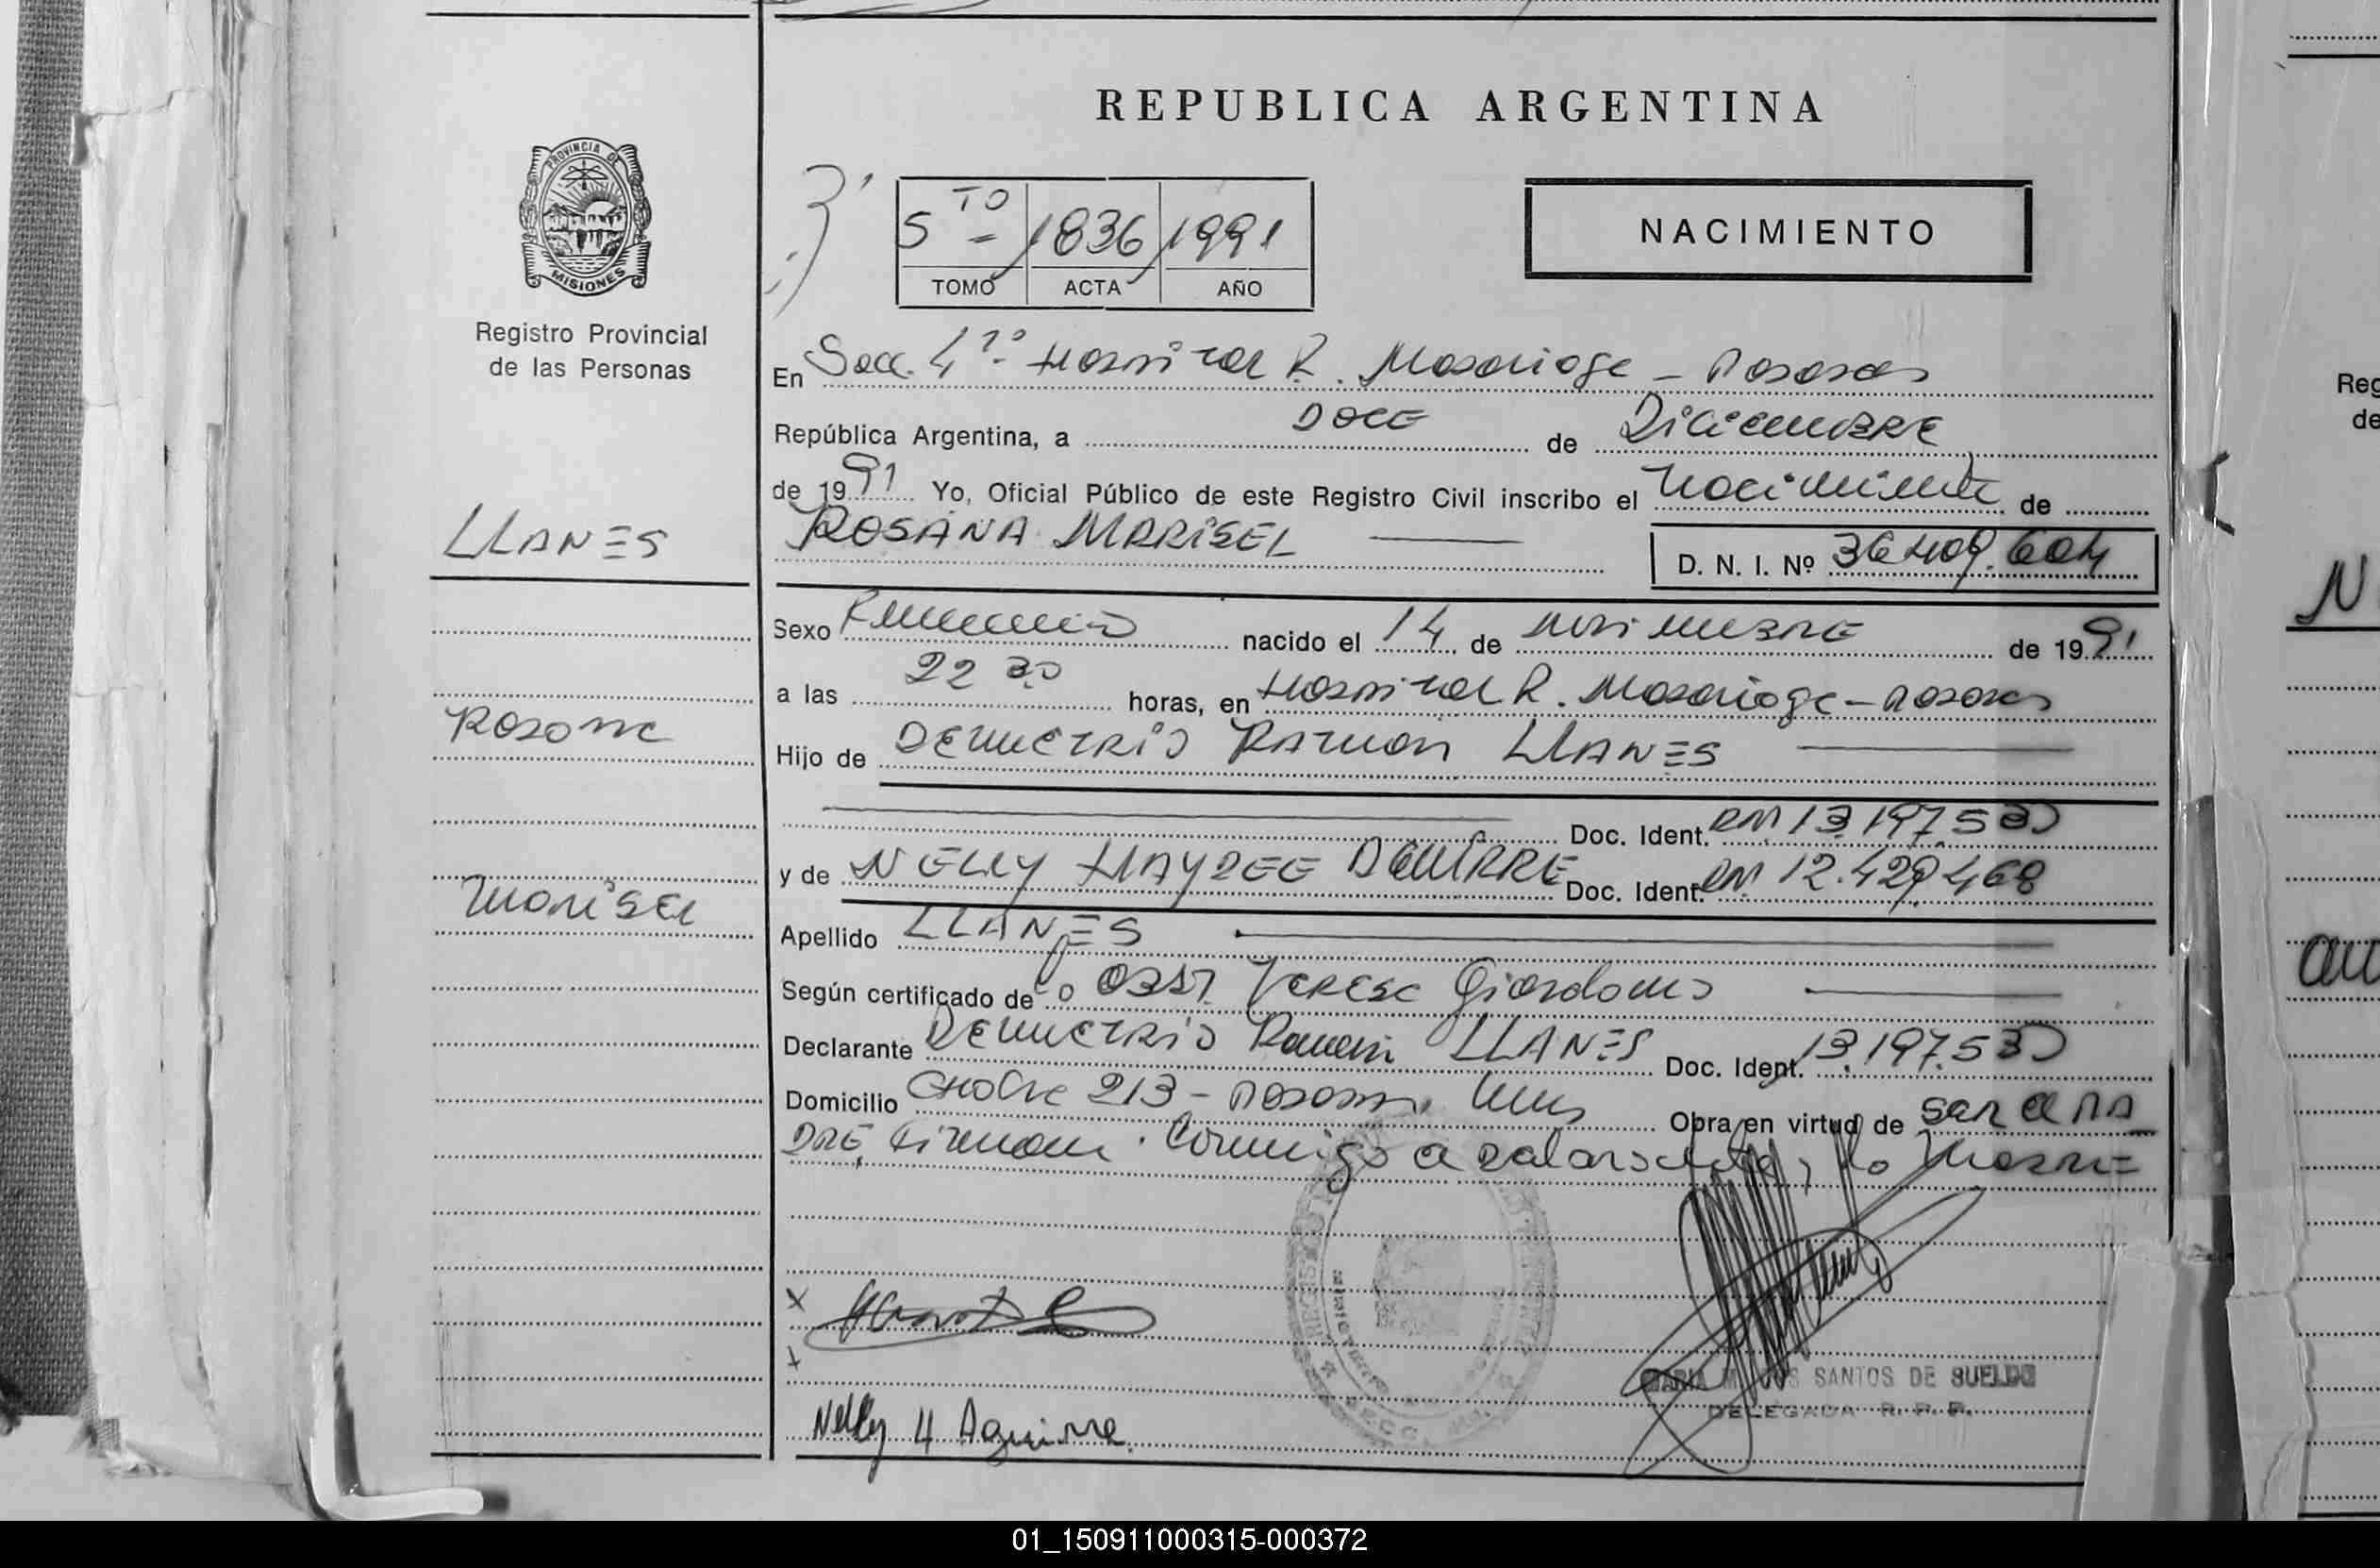 REPUBLICA ARGENTINA
PROVINCIA DE
MISIONES
Registro Provincial
de las Personas
5 TO - 1836 1991
TOMO ACTA AÑO
NACIMIENTO
En Secc. 4ta Hospital R. Madariaga - Posadas
República Argentina, a DOCE de Diciembre
de 1991 Yo, Oficial Público de este Registro Civil inscribo el Nacimiento de
LLANES
ROSANA MARISEL
D. N. I. Nº 36.409.604
Sexo Femenino nacido el 14 de Noviembre de 1991
a las 22 30 horas, en Hospital R. Madariaga - Posadas
Rosana
Hijo de DEMETRIO RAMON LLANES
Doc. Ident. DNI 13.197.530
y de NELLY HAYDEE AGUIRRE Doc. Ident. DNI 12.429.468
Marisel
Apellido LLANES
Según certificado de Obst. Teresa Giordano
Declarante DEMETRIO Ramon LLANES Doc. Ident. 13.197.530
Domicilio 213 - Posadas Obra en virtud de ser el PA
DRE, Firman conmigo la Madre
Nelly H Aguirre
SANTOS DE SUELDO
DELEGADA R. P. P.
Reg
de
N
01_150911000315-000372